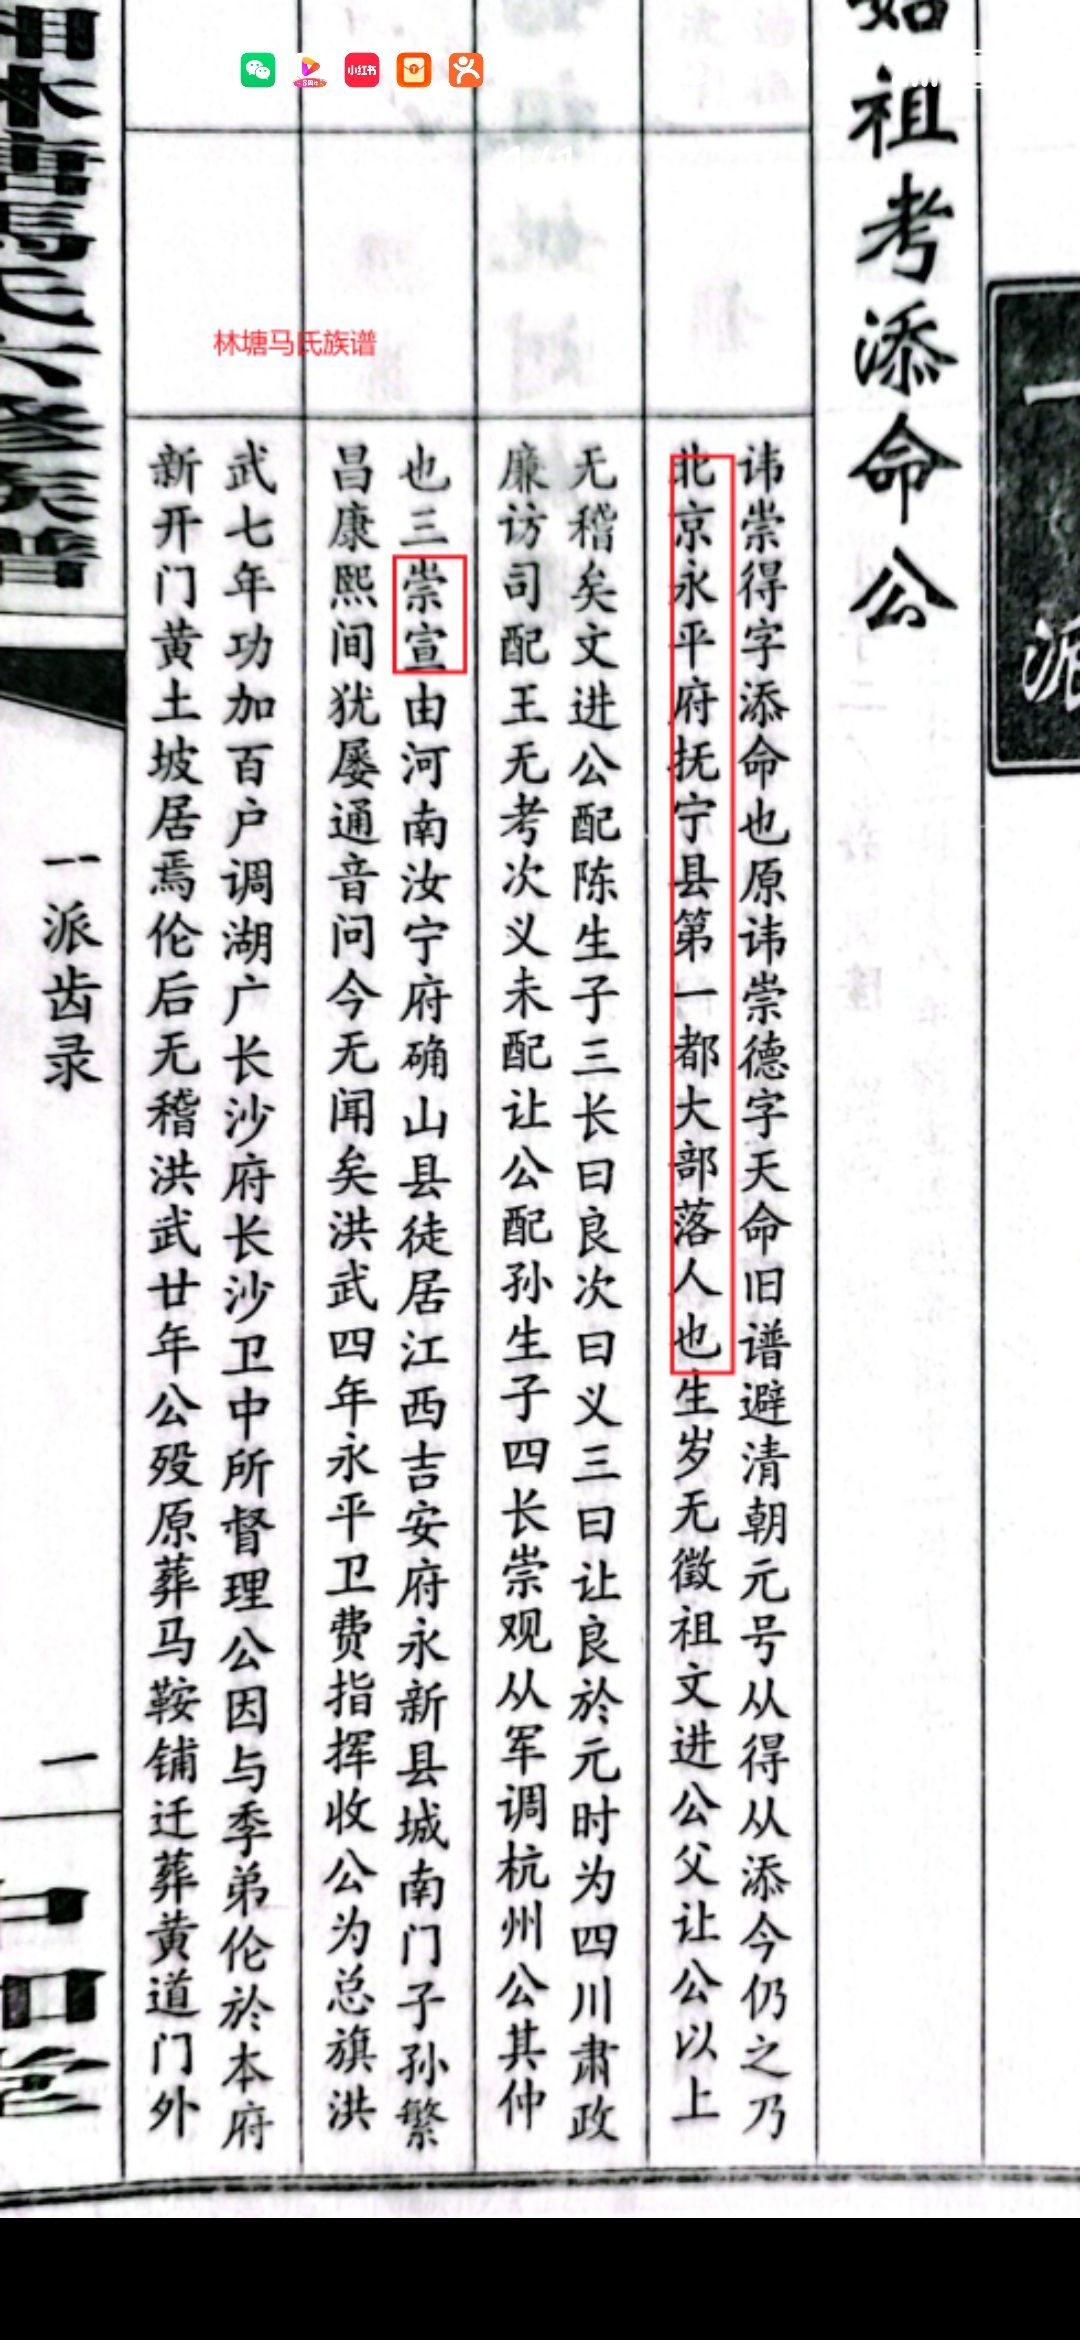 祖考添命公
讳崇得字添命也原讳崇德字天命旧谱避清朝元号从得从添今仍之乃
北京永平府抚宁县第一都大部落人也生岁无徵祖文进公父让公以上
无稽矣文进公配陈生子三长曰良次曰义三曰让良於元时为四川肃政
廉访司配王无考次义未配让公配孙生子四长崇观从军调杭州公其仲
也三崇宣由河南汝宁府确山县徒居江西吉安府永新县城南门子孙繁
昌康熙间犹屡通音问今无闻矣洪武四年永平卫费指挥收公为总旗洪
武七年功加百户调湖广长沙府长沙卫中所督理公因与季弟伦於本府
新开门黄土坡居焉伦后无稽洪武廿年公殁原葬马鞍铺迁葬黄道门外
林塘马氏族谱
一派齿录
一
小红书